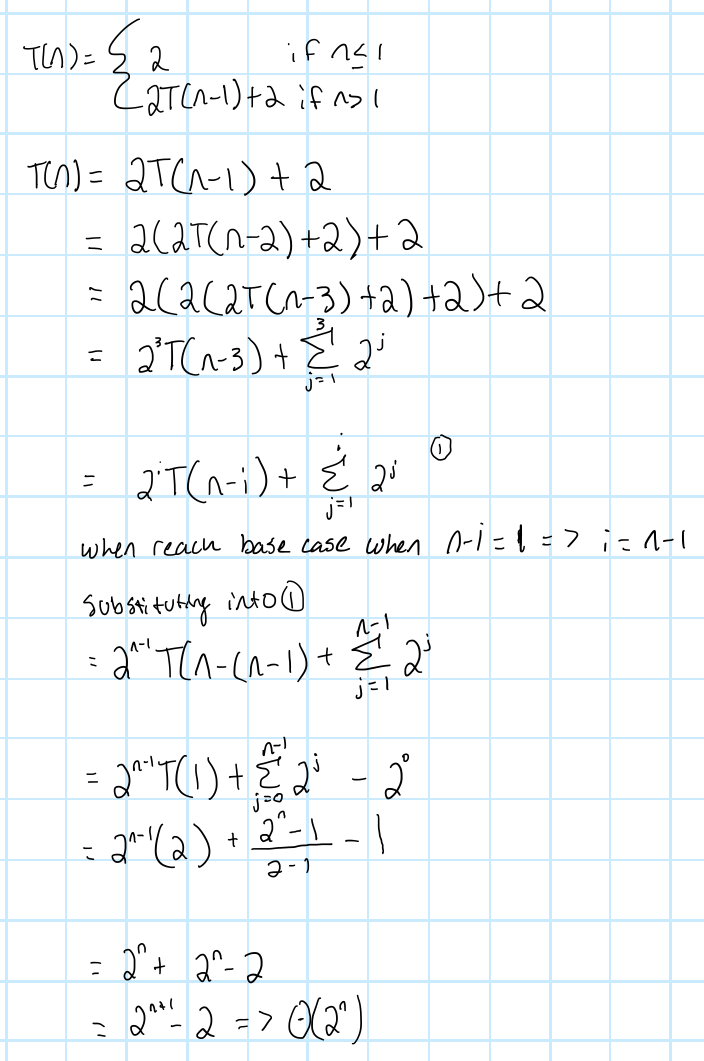 T(n) = { 2 if n ≤ 1
2T(n-1)+2 if n > 1
T(n) = 2T(n-1) + 2
= 2(2T(n-2)+2)+2
= 2(2(2T(n-3)+2)+2)+2
= 2³T(n-3) + ∑_{j=1}^{3} 2^j
= 2^i T(n-i) + ∑_{j=1}^{i} 2^j ①
when reach base case when n-i = 1 => i = n-1
substituting into ①
= 2^{n-1} T(n-(n-1) + ∑_{j=1}^{n-1} 2^j
= 2^{n-1} T(1) + ∑_{j=0}^{n-1} 2^j - 2^0
= 2^{n-1}(2) + \frac{2^n - 1}{2-1} - 1
= 2^n + 2^n - 2
= 2^{n+1} - 2 => Θ(2^n)